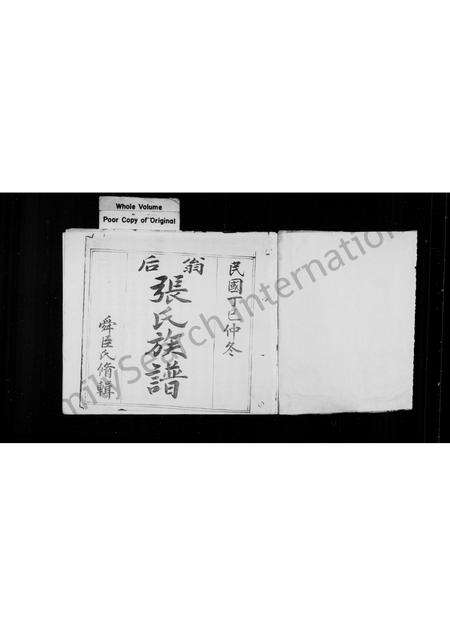 Whole Volume
-
Poor Copy of Original
民國丁巳仲冬
翁后
張氏族譜
舜臣氏脩輯
milySearch International